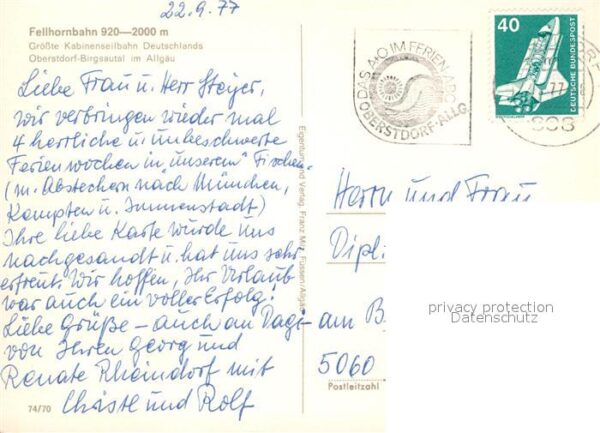 22.9.77
Fellhornbahn 920—2000 m
Größte Kabinenseilbahn Deutschlands
Oberstdorf-Birgsautal im Allgäu
Liebe Frau u. Herr Steiger,
wir verbringen wieder mal
4 herrliche u. unbeschwerte
Ferienwochen in „unserem" Fischen.
(m. Abstechern nach München,
Kempten u. Immenstadt)
Ihre liebe Karte wurde uns
nachgesandt u. hat uns sehr
erfreut. Wir hoffen, Ihr Urlaub
war auch ein voller Erfolg!
Liebe Grüße – auch an Dagi –
von Ihren Georg und
Renate Rheindorf mit
Christl und Rolf
74/70
Eigentum und Verlag, Franz Milz, Füssen/Allgäu
DAS A-O IM FERIEN ABC
OBERSTDORF-ALLG.
40
DEUTSCHE BUNDESPOST
77
808
Herrn und Frau
Dipl
am B
5060
Postleitzahl
privacy protection
Datenschutz